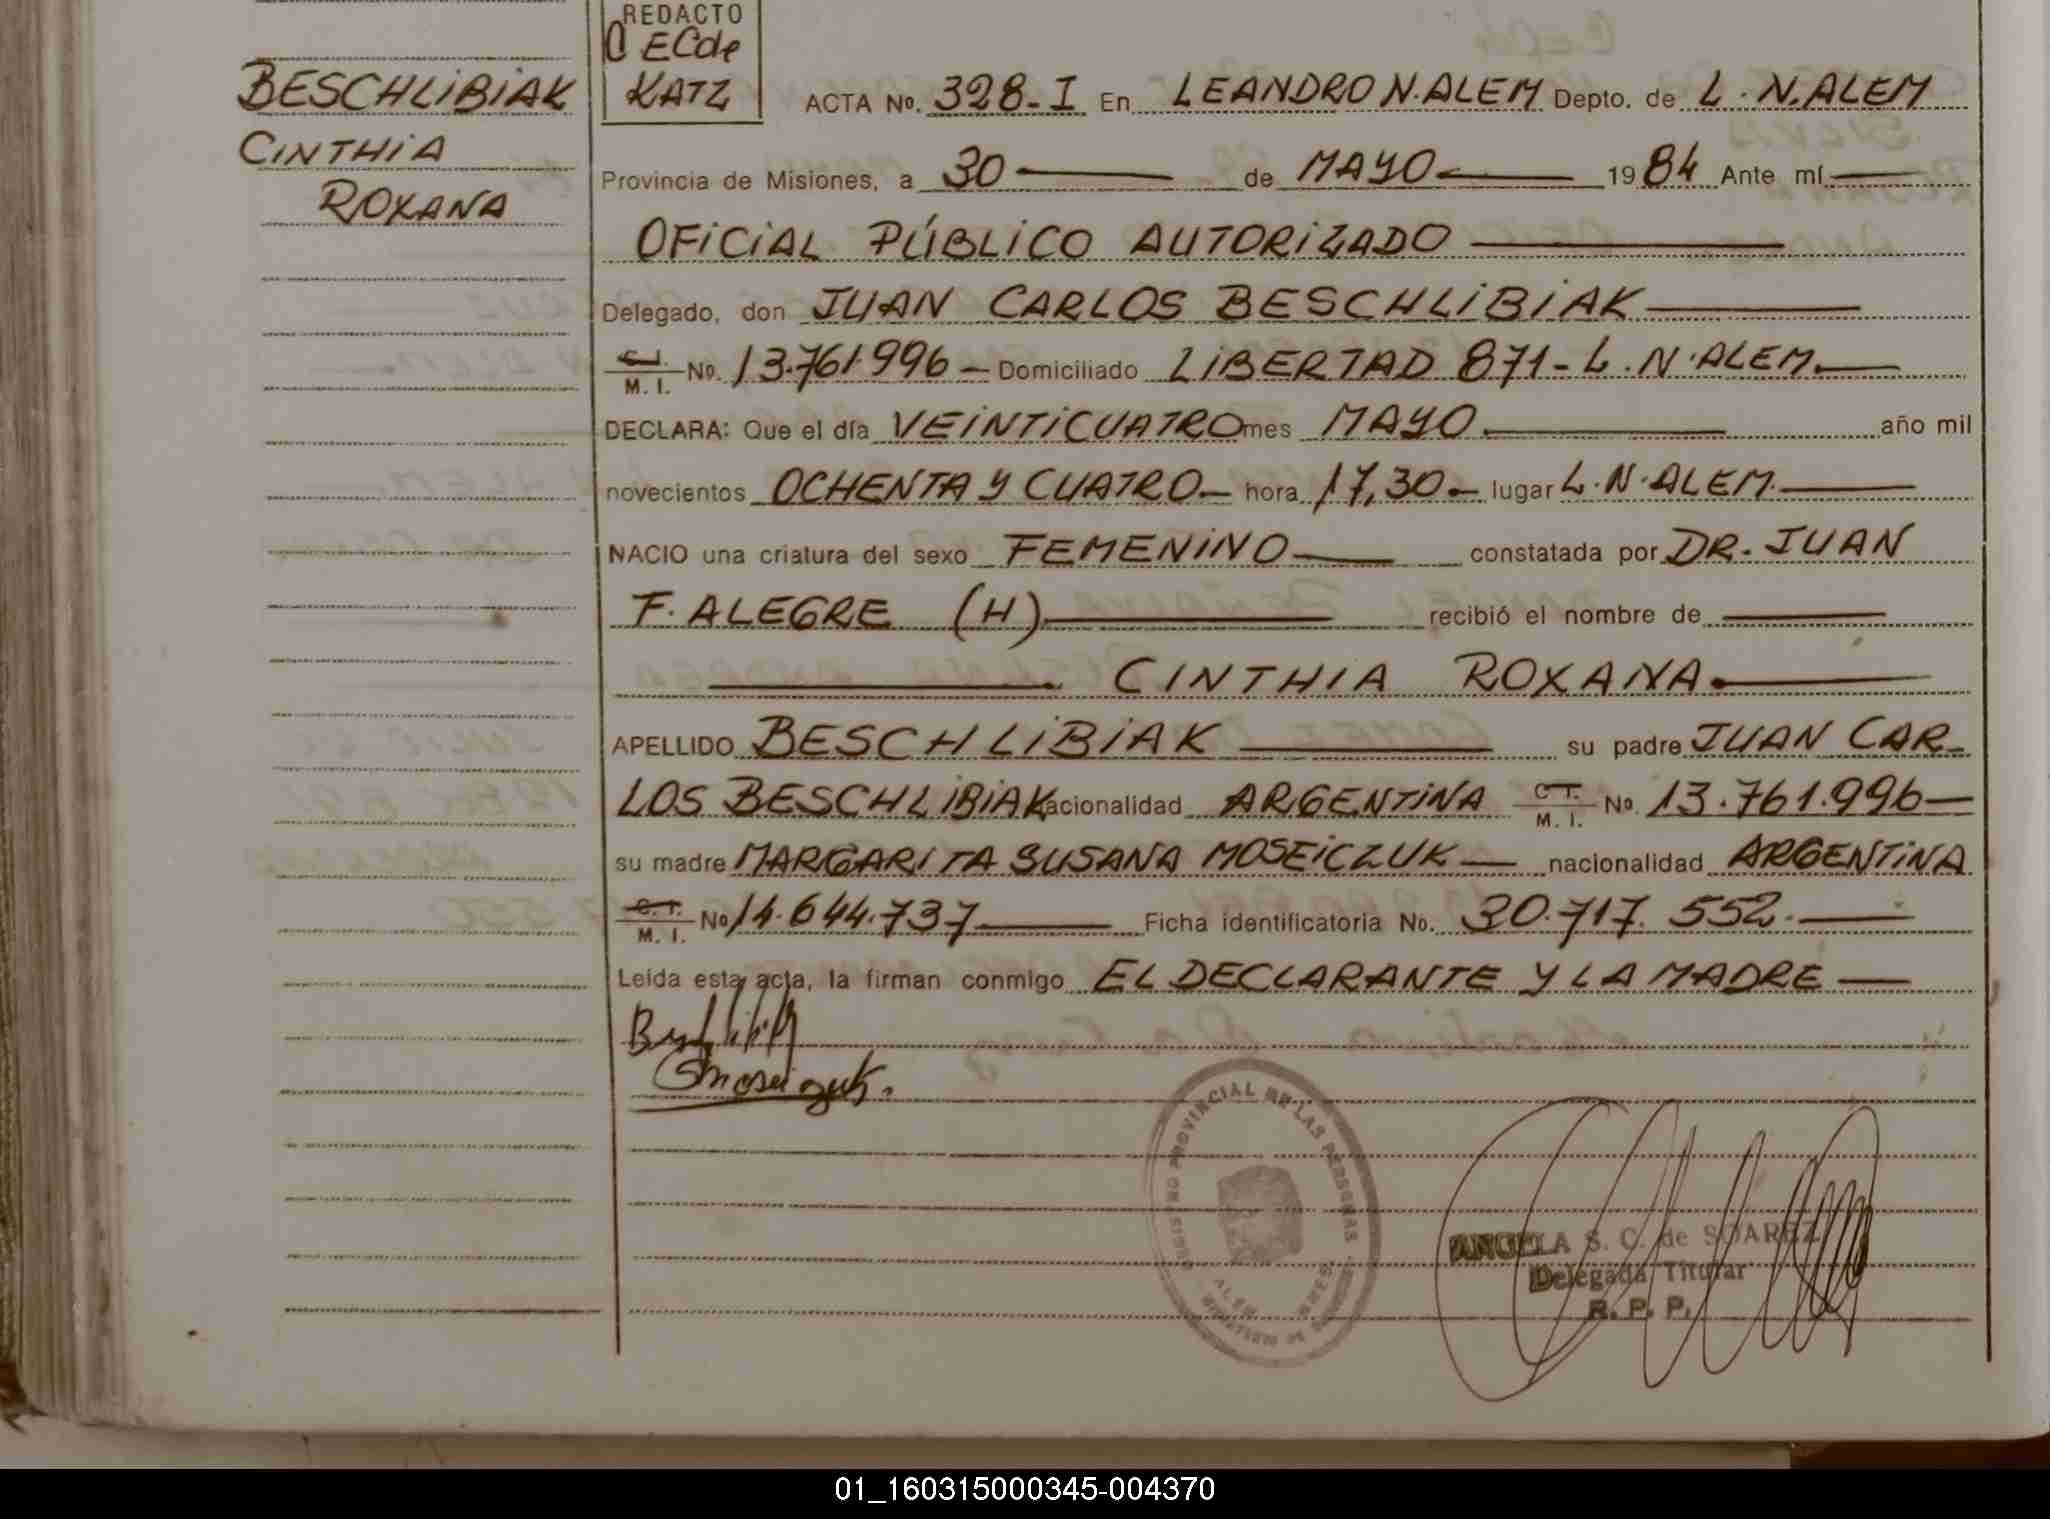 BESCHLIBIAK
CINTHIA
ROXANA
REDACTO
C ECde
KATZ
ACTA No. 328-I En LEANDRO N. ALEM Depto. de L. N. ALEM
Provincia de Misiones, a 30 de MAYO 1984 Ante mí
OFICIAL PÚBLICO AUTORIZADO
Delegado, don JUAN CARLOS BESCHLIBIAK
C.I. M. I. No. 13.761.996 Domiciliado LIBERTAD 871 - L. N. ALEM
DECLARA: Que el día VEINTICUATRO mes MAYO año mil
novecientos OCHENTA Y CUATRO hora 17,30 lugar L. N. ALEM
NACIO una criatura del sexo FEMENINO constatada por DR. JUAN
F. ALEGRE (H) recibió el nombre de
CINTHIA ROXANA
APELLIDO BESCHLIBIAK su padre JUAN CAR-
LOS BESCHLIBIAK nacionalidad ARGENTINA C.I. M. I. No. 13.761.996
su madre MARGARITA SUSANA MOSEICZUK nacionalidad ARGENTINA
C.I. M. I. No 14.644.737 Ficha identificatoria No. 30.717.552
Leída esta acta, la firman conmigo EL DECLARANTE Y LA MADRE
REGISTRO PROVINCIAL DE LAS PERSONAS
ALEM
ANGELA S. C. de SOAREZ
Delegada Titular
R. P. P.
01_160315000345-004370